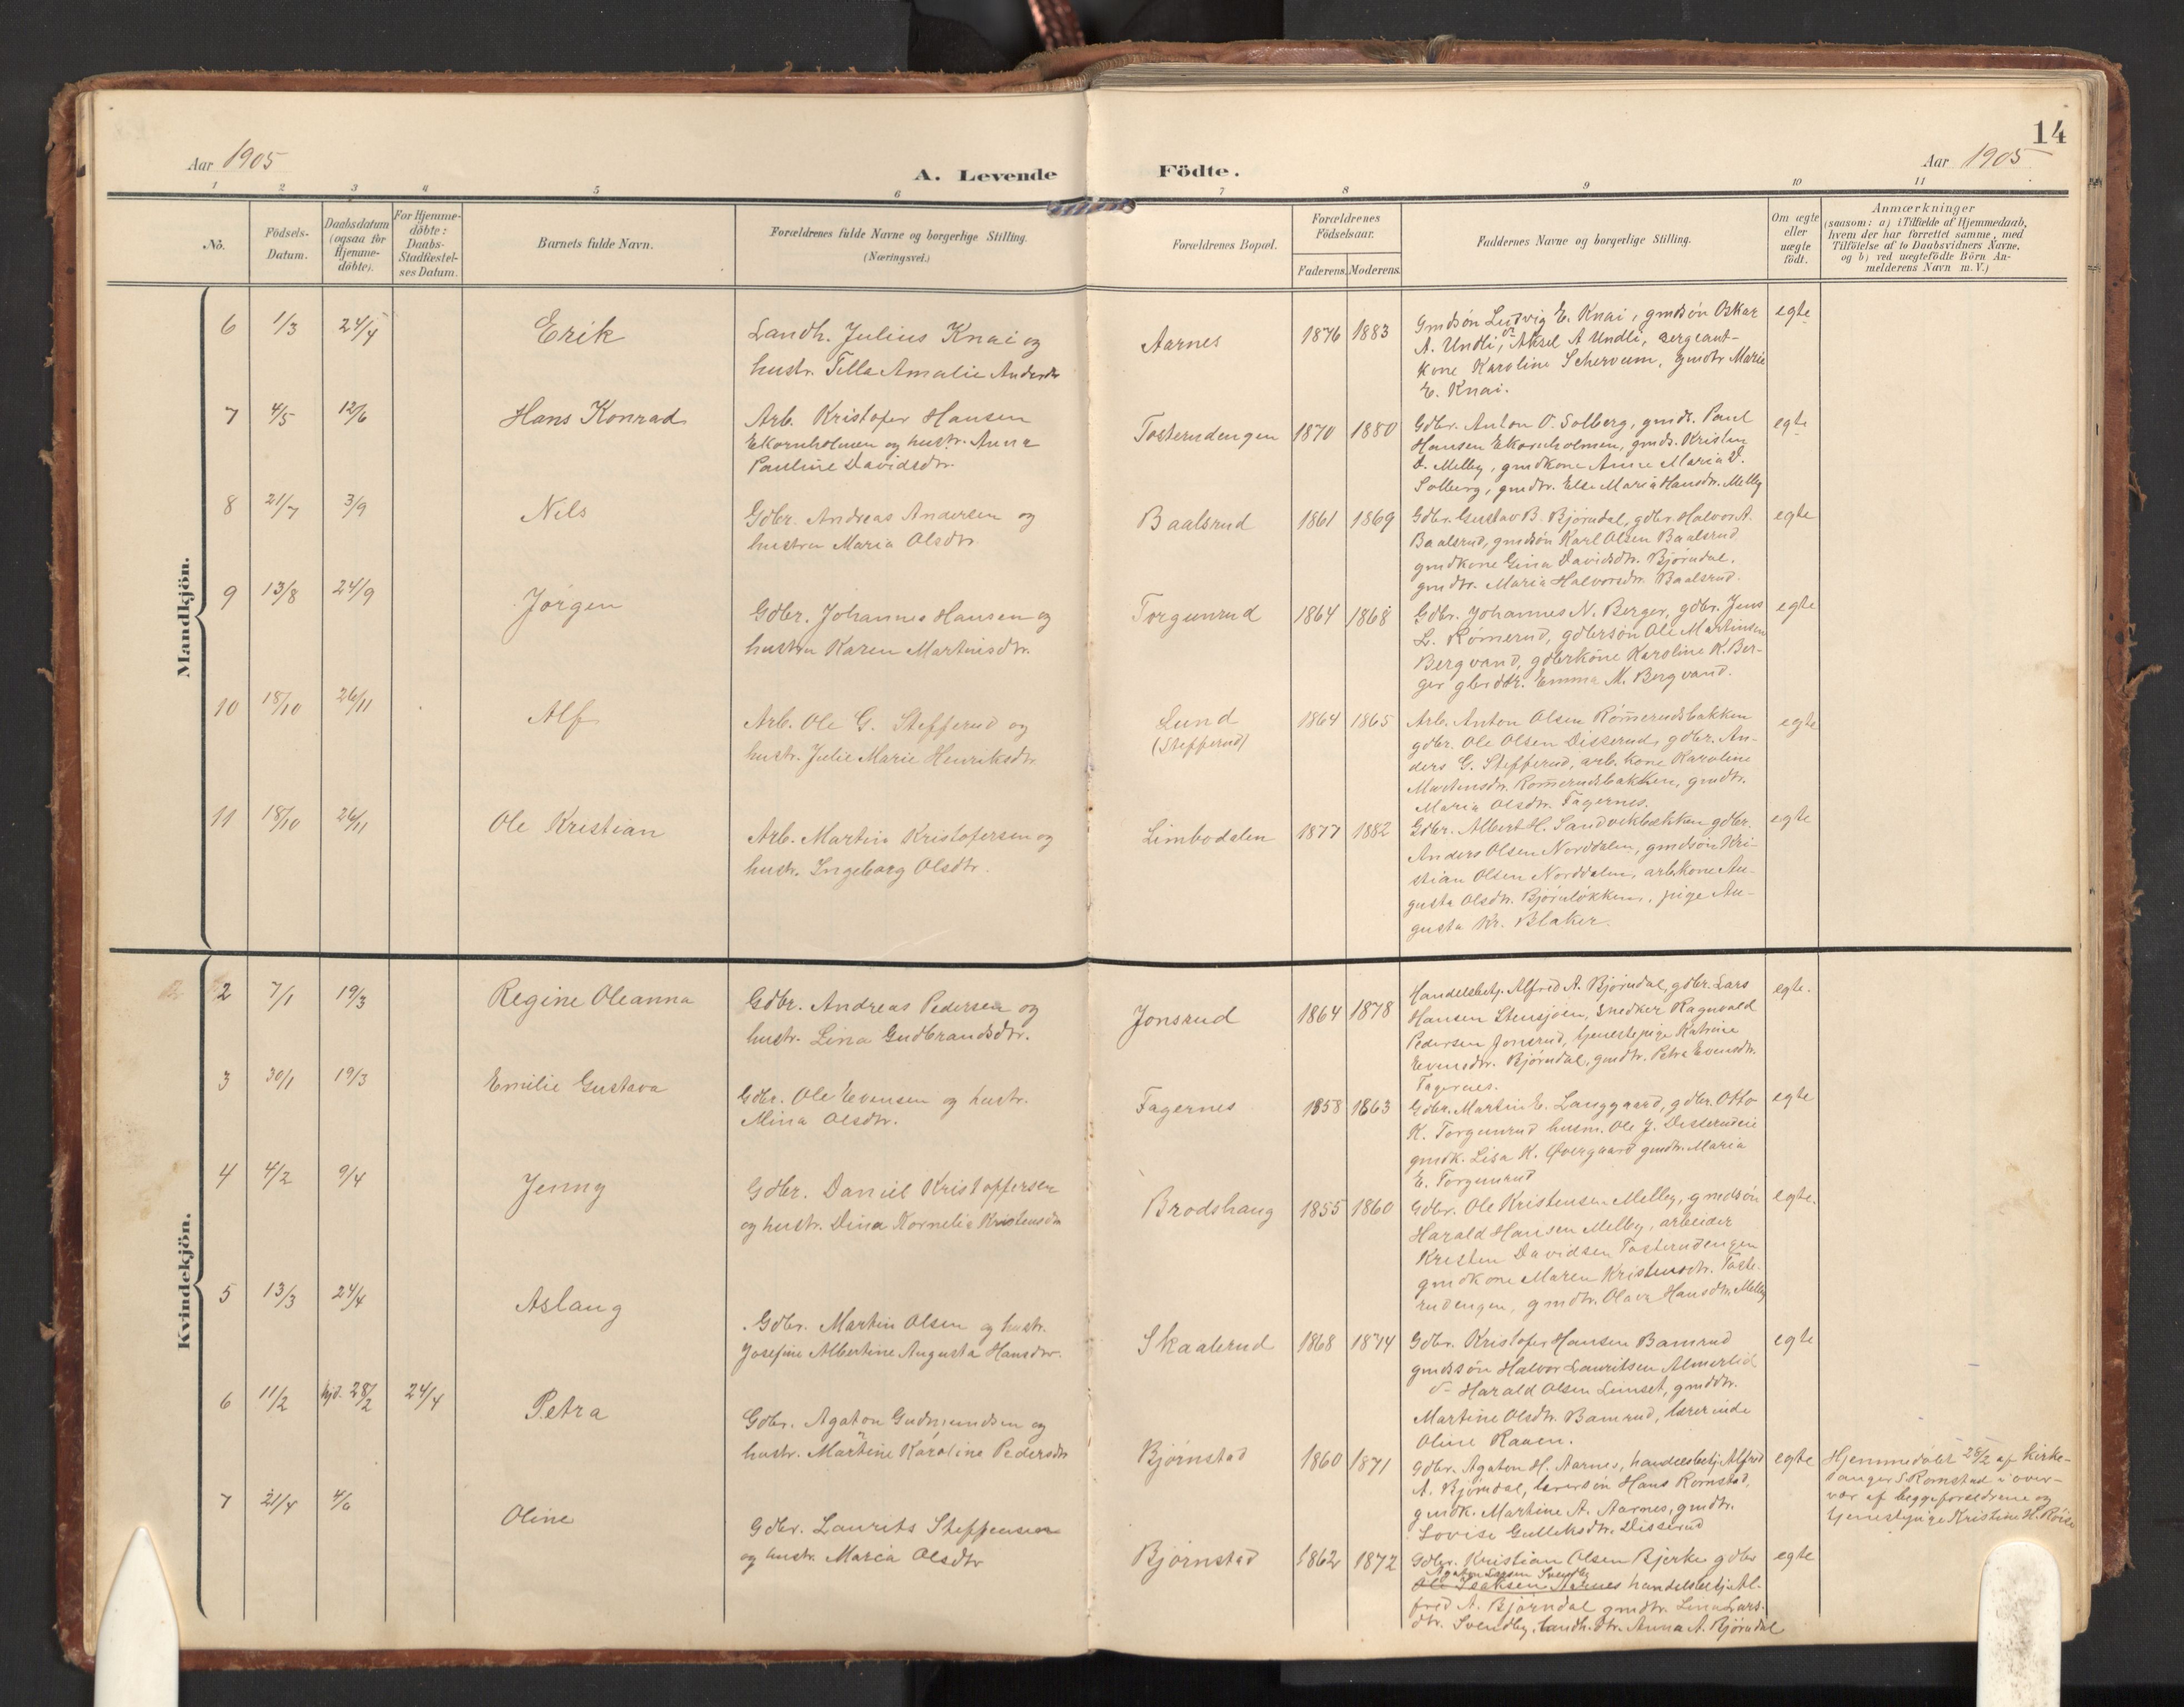 14
Aar 1905
A. Levende Födte.
Aar 1905
1 2 3 4 5 6 7 8 9 10 11
No.
Födsels-
Datum.
Daabsdatum
(ogsaa for
Hjemme-
döbte).
For Hjemme-
döbte:
Daabs-
Stadfæstel-
ses Datum.
Barnets fulde Navn.
Forældrenes fulde Navne og borgerlige Stilling.
(Næringsvei.)
Forældrenes Bopæl.
Forældrenes
Födselsaar.
Faderens. Moderens.
Faddernes Navne og borgerlige Stilling.
Om ægte
eller
uægte
födt.
Anmærkninger
(saasom: a) i Tilfælde af Hjemmedaab,
hvem der har forrettet samme, med
Tilföielse af to Daabsvidners Navne,
og b) ved uægtefödte Börn An-
melderens Navn m. V.)
Mandkjön.
6 1/3 24/4 Erik
Landh. Julius Knai og
hustr. Tilla Amalie Andersdtr
Aarnes 1876 1883
Gmdsøn Ludvig E. Knai, gmdsøn Oskar
A. Undli, do Aksel A Undli, sergeant-
kone Karoline Schervum, gmdtr Marie
E. Knai.
egte
7 4/5 12/6 Hans Konrad
Arb. Kristofer Hansen
Ekornholmen og hustr. Anna
Pauline Davidsdtr.
Tosterudengen 1870 1880
Gdbr. Anton O. Solberg, gmds. Paul
Hansen Ekornholmen, gmds. Kristen
D. Melby, gmdkone Anne Maria D.
Solberg, gmdtr. Else Maria Hansdtr. Melby
egte
8 21/7 3/9 Nils
Gdbr. Andreas Andersen og
hustru Maria Olsdtr.
Baalsrud 1861 1869
Gdbr. Gustav B. Bjørndal, gdbr. Halvor A.
Baalsrud, gmdsøn Karl Olsen Baalsrud
gmdkone Gina Davidsdtr. Bjørndal,
gmdtr. Maria Halvorsdtr. Baalsrud.
egte
9 13/8 24/9 Jørgen
Gdbr. Johannes Hansen og
hustru Karen Martinsdtr.
Torgunrud 1864 1868
Gdbr. Johannes N. Berger, gdbr. Jens
L. Rømerud, gdbrsøn Ole Martinsen
Bergvand, gdbrkone Karoline K. Ber-
ger gbrdtr. Emma M. Bergvand.
egte
10 18/10 26/11 Alf
Arb. Ole G. Stefferud og
hustr. Julie Marie Henriksdtr.
Lund
(Stefferud)
1864 1865
Arb. Anton Olsen Rømerudsbakken
gdbr. Ole Olsen Disserud, gdbr. An-
ders G. Stefferud, arb. kone Karoline
Martinsdtr. Rømerudsbakken, gmdtr.
Maria Olsdtr. Fagernes.
egte
11 18/10 26/11 Ole Kristian
Arb. Martin Kristofersen og
hustr. Ingeborg Olsdtr.
Limbodalen 1877 1882
Gdbr. Albert H. Sandvikbækken gdbr.
Anders Olsen Norddalen, gmdsøn Kri-
stian Olsen Norddalen, arbkone Au-
gusta Olsdtr. Bjørnløkken, pige Au-
gusta Kr. Blaker.
egte
Kvindekjön.
2 7/1 19/3 Regine Oleanna
Gdbr. Andreas Pedersen og
hustr. Lina Gudbrandsdtr.
Jonsrud 1864 1878
Handelsbetj. Alfred A. Bjørndal, gdbr. Lars
Hansen Stensjøen, Snedker Ragnvald
Pedersen Jonsrud, tjenestepige Katrine
Evensdtr. Bjørndal, gmdtr. Petra Evensdtr.
Fagernes.
egte.
3 30/1 19/3 Emilie Gustava
Gdbr. Ole Evensen og hustr.
Mina Olsdtr.
Fagernes 1858 1863
Gdbr. Martin E. Langgaard, gdbr. Otto
K. Torgunrud husm. Ole J. Disserudeie
gmdk. Lisa K. Øvergaard gmdtr. Maria
E. Torgunrud
egte
4 4/2 9/4 Jenny
Gdbr. Daniel Kristoffersen
og hustr. Dina Kornelia Kristensdtr
Brodshaug 1855 1860
Gdbr. Ole Kristensen Melby, gmdsøn
Harald Hansen Melby, arbeider
Kristen Davidsen Tosterudengen
gmdkone Maren Kristensdtr. Toste-
rudengen, gmdtr. Olava Hansdtr. Melby
egte.
5 13/3 24/4 Aslaug
Gdbr. Martin Olsen og hustr.
Josefine Albertine Augusta Hansdtr.
Skaalerud 1868 1874
Gdbr. Kristofer Hansen Bamrud
gmdssøn Halvor Lauritsen Almerlid
do Harald Olsen Limset, gmddtr.
Martine Olsdtr. Bamrud, lærerinde
Oline Raaen.
egte
6 11/2 hjd. 28/2 24/4 Petra
Gdbr. Agaton Gudmundsen og
hustr. Martine Karoline Pedersdtr
Bjørnstad 1860 1871
Gdbr. Agaton H. Aarnes, handelsbetj. Alfred
A. Bjørndal, lærersøn Hans Romstad,
gmdk. Martine A. Aarnes, gmdtr.
Lovise Gulliksdtr. Disserud
egte
Hjemmedøbt 28/2 af kirke-
sanger S. Romstad i over-
vær af begge forældrene og
tjenestepige Kristine H. Røise
7 21/4 4/6 Oline
Gdbr. Laurits Steffensen
og hustr. Maria Olsdtr
Bjørnstad 1862 1872
Gdbr. Kristian Olsen Bjerke gdbr
Agaton Larsen Svendby
Ole Isaksen Aarnes handelsbetj. Al-
fred A. Bjørndal gmdtr. Lina Lars-
dtr. Svendby, landh. dtr. Anna A. Bjørndal
egte